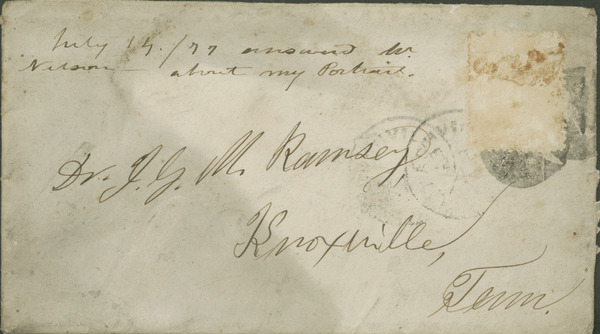 July 14./77 answered Mr.
Nelson — about my Portrait.
Dr. J. G. M. Ramsey
Knoxville,
Tenn.